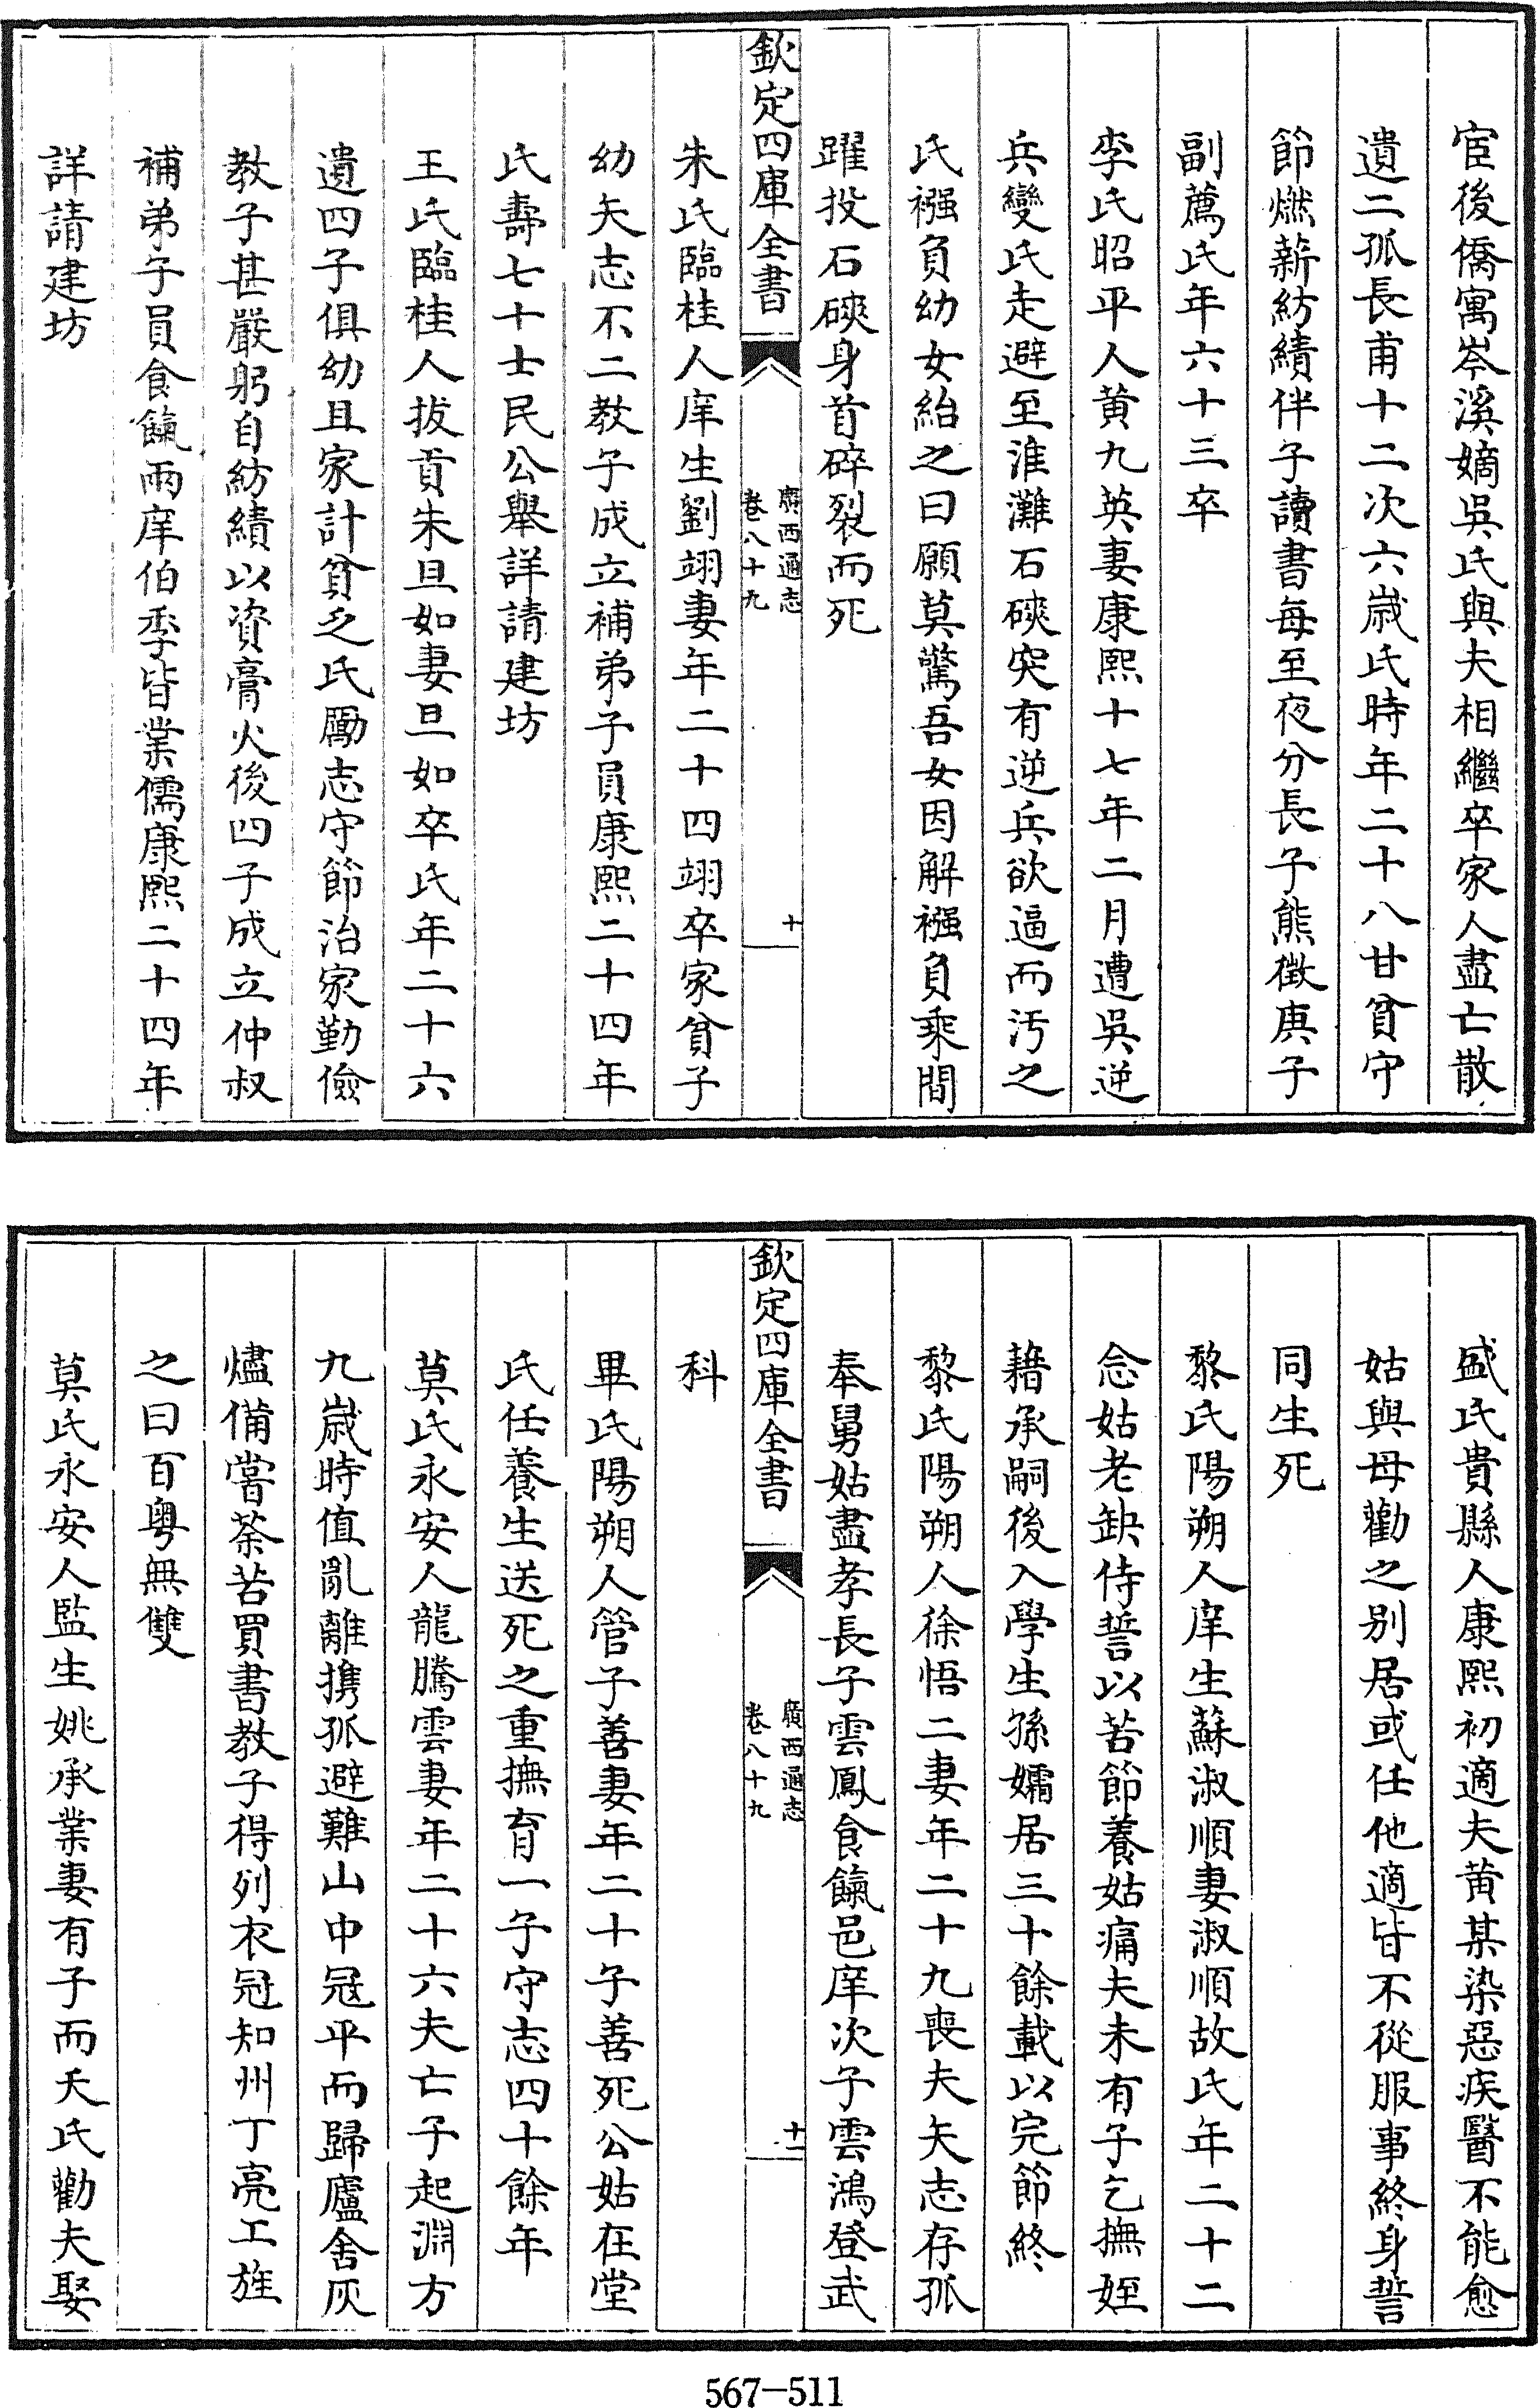 宦後僑寓岑溪嫡吳氏與夫相繼卒家人盡亡散
遺二孤長甫十二次六歲氏時年二十八甘貧守
節燃薪紡績伴子讀書每至夜分長子熊徵庚子
副薦氏年六十三卒
李氏昭平人黄九英妻康熙十七年二月遭吳逆
兵變氏走避至淮灘石硤突有逆兵欲逼而汚之
氏襁負幼女紿之曰願莫驚吾女因解襁負乘間
躍投石硤身首碎裂而死
欽定四庫全書
廣西通志
卷八十九
十
朱氏臨桂人庠生劉翊妻年二十四翊卒家貧子
幼矢志不二教子成立補弟子員康熙二十四年
氏壽七十士民公舉詳請建坊
王氏臨桂人拔貢朱旦如妻旦如卒氏年二十六
遺四子俱幼且家計貧乏氏勵志守節治家勤儉
教子甚嚴躬自紡績以資膏火後四子成立仲叔
補弟子員食餼兩庠伯季皆業儒康熙二十四年
詳請建坊
盛氏貴縣人康熙初適夫黄某染惡疾醫不能愈
姑與母勸之别居或任他適皆不從服事終身誓
同生死
黎氏陽朔人庠生蘇淑順妻淑順故氏年二十二
念姑老缺侍誓以苦節養姑痛夫未有子乞撫姪
藉承嗣後入學生孫孀居三十餘載以完節終
黎氏陽朔人徐悟二妻年二十九喪夫矢志存孤
奉舅姑盡孝長子雲鳳食餼邑庠次子雲鴻登武
欽定四庫全書
廣西通志
卷八十九
十一
科
畢氏陽朔人管子善妻年二十子善死公姑在堂
氏任養生送死之重撫育一子守志四十餘年
莫氏永安人龍騰雲妻年二十六夫亡子起淵方
九歲時值亂離携孤避難山中冦平而歸廬舍灰
燼備嘗荼苦買書教子得列衣冠知州丁亮工旌
之曰百粤無雙
莫氏永安人監生姚承業妻有子而夭氏勸夫娶
567-511